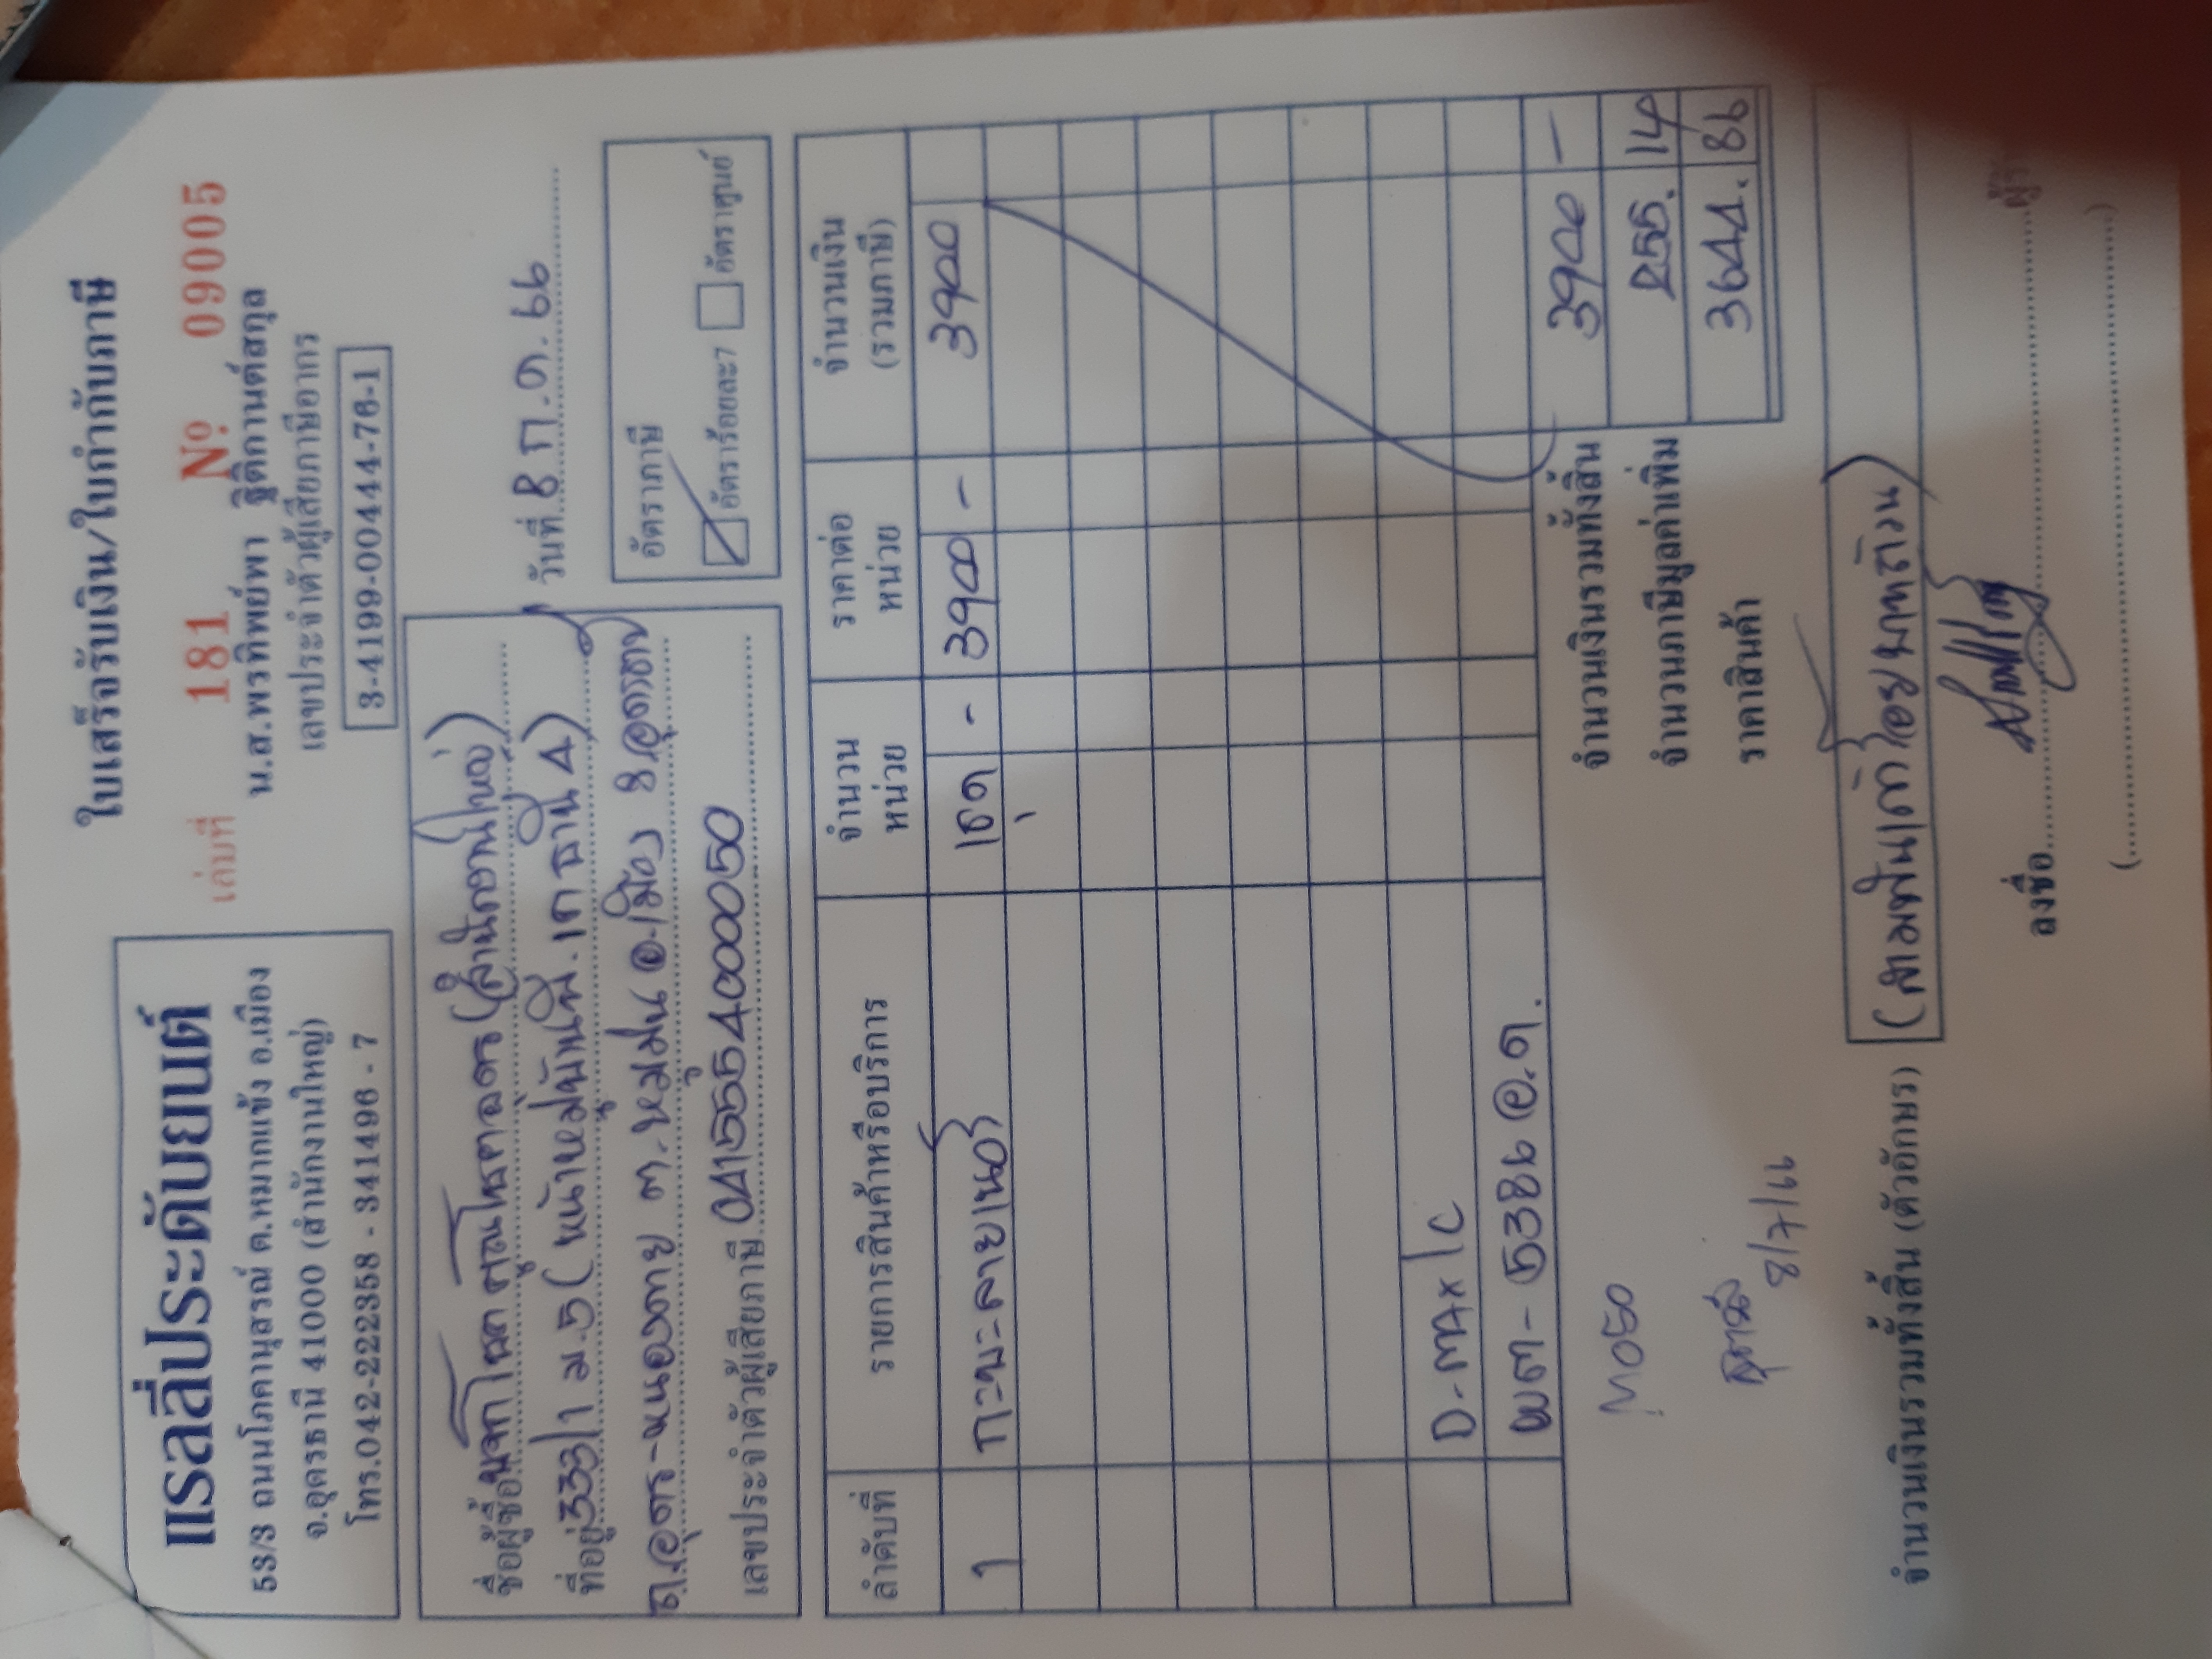 แรลลี่ประดับยนต์
53/3 ถนนโภคานุสรณ์ ต.หมากแข้ง อ.เมือง
จ.อุดรธานี 41000 (สำนักงานใหญ่)
โทร.042-222358 - 341496 - 7
ใบเสร็จรับเงิน/ใบกำกับภาษี
เล่มที่ 181 Nº 09005
น.ส.พรทิพย์พา ฐิติกานต์สกุล
เลขประจำตัวผู้เสียภาษีอากร
3-4199-00444-76-1
ชื่อผู้ซื้อ (สำนักงานใหญ่)
ที่อยู่ 333/1 ม.5 (หน้าหมู่บ้าน
ถ.อุดร-หนองคาย ต.หมูม่น อ.เมือง จ.อุดรธานี
เลขประจำตัวผู้เสียภาษี 0415554000050
วันที่ 8 ก.ค. 66
อัตราภาษี
อัตราร้อยละ7 อัตราศูนย์
ลำดับที่ รายการสินค้าหรือบริการ จำนวนหน่วย ราคาต่อหน่วย จำนวนเงิน (รวมภาษี)
1 กะบะลายเนอ 1ชุด - 3900 - 3900
D-MAX 1C
ผต-5386 อ.ด.
จำนวนเงินรวมทั้งสิ้น 3900 -
จำนวนภาษีมูลค่าเพิ่ม 255. 14
ราคาสินค้า 3644. 86
8/7/66
จำนวนเงินรวมทั้งสิ้น (ตัวอักษร) (สามพันเก้าร้อยบาทถ้วน)
ลงชื่อ